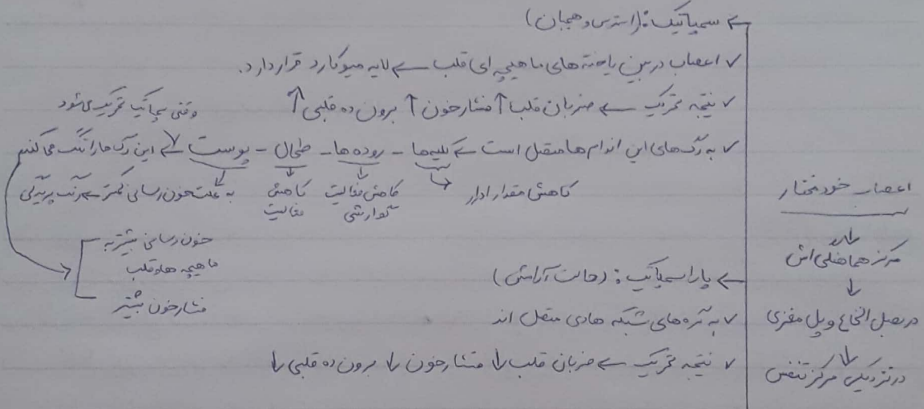 اعصاب خودمختار
↓
مرکز هماهنگی اش
↓
در بصل النخاع و پل مغزی
↓
در نزدیکی مرکز تنفس
← سمپاتیک: (استرس و هیجان)
✓ اعصاب در بین یاخته های ماهیچه ای قلب ← لایه میوکارد قرار دارد.
✓ نتیجه تحریک ← ضربان قلب ↑ فشار خون ↑ برون ده قلبی ↑
وقتی سمپاتیک تحریک می شود
✓ به رگ های این اندام ها متصل است ← کلیه ها - روده ها - طحال - پوست ← این رگ ها را تنگ می کند
کاهش مقدار ادرار
کاهش فعالیت گوارشی
کاهش فعالیت
به علت خون رسانی کمتر ← رنگ پریدگی
خون رسانی بیشتر به
ماهیچه ها و قلب
فشار خون بیشتر
← پاراسمپاتیک: (حالت آرامش)
✓ به گره های شبکه هادی متصل اند
✓ نتیجه تحریک ← ضربان قلب ↓ فشار خون ↓ برون ده قلبی ↓